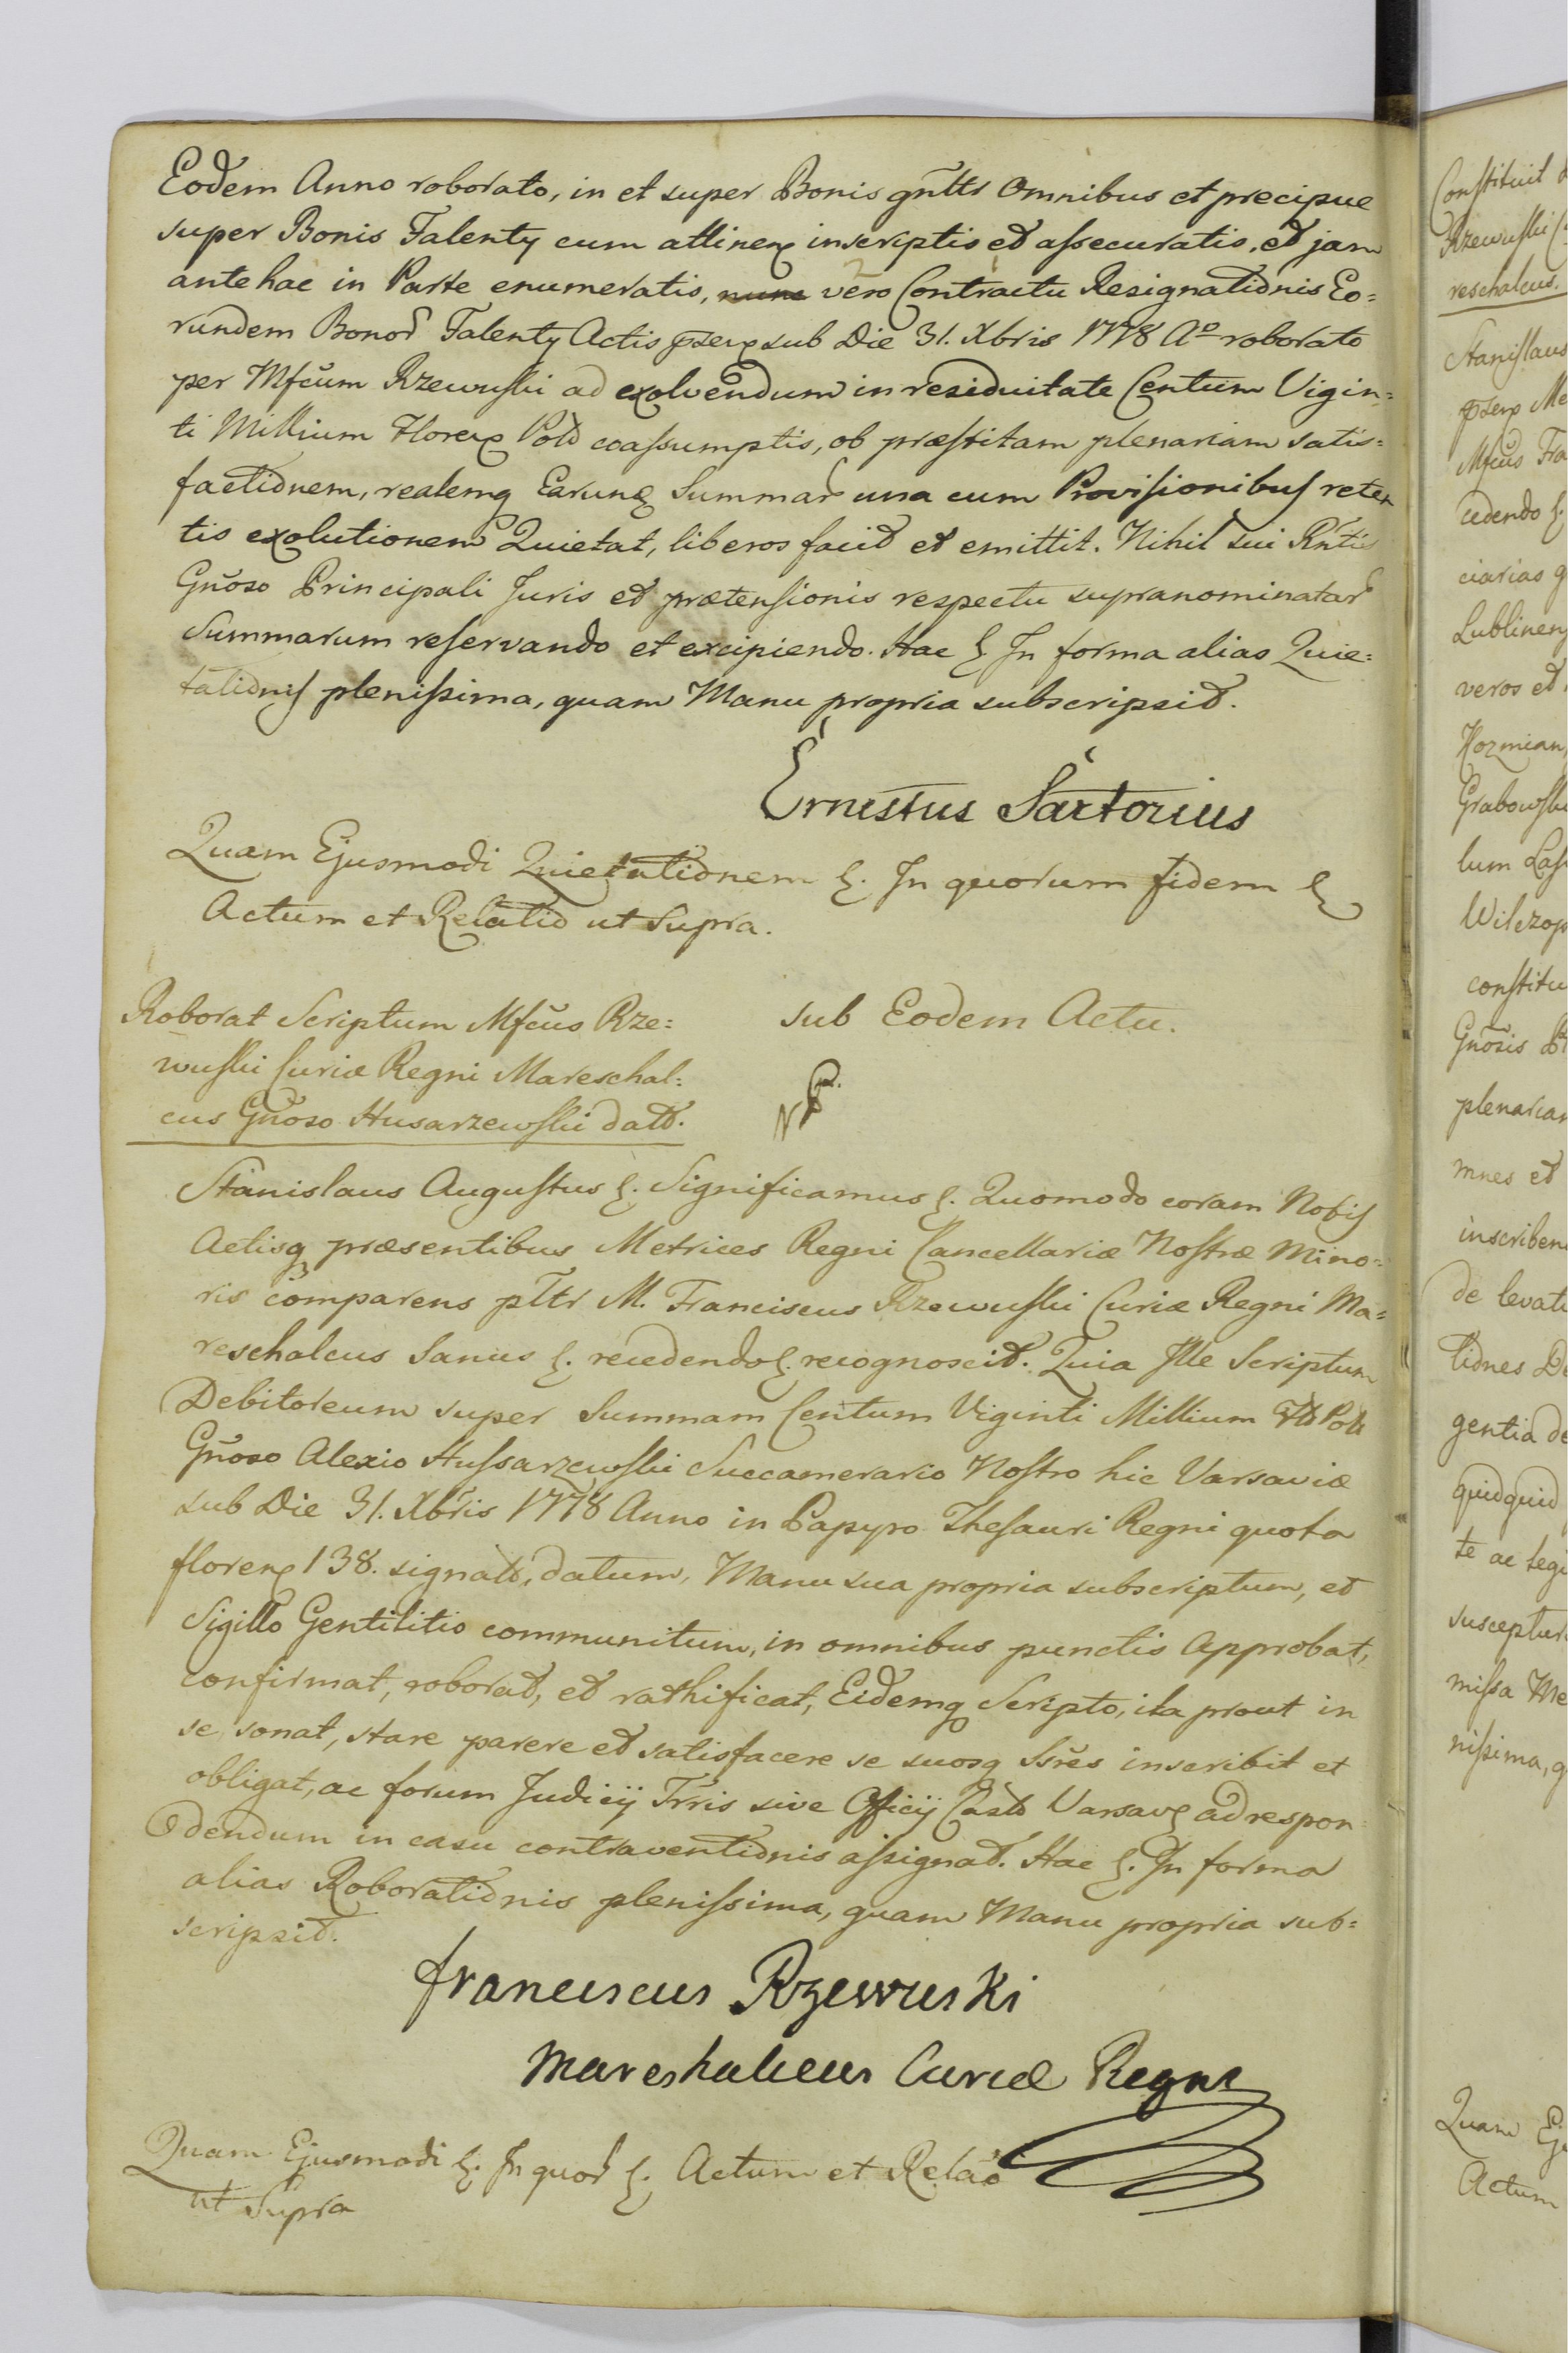 Eodem Anno roborato, in et super Bonis gñltr Omnibus et precipue
super Bonis Falenty cum attinen inscriptis et assecuratis, et jam
antehac in Parte enumeratis, nunc vero Contractu Resignationis Eo=
rundem Bonor Falenty Actis psen sub Die 31. Xbris 1778 Aº roborato
per Mfcum Rzewuski ad exolvendum in residuitate Centum Vigin=
ti Millium Floren Pol coassumptis, ob præstitam plenariam satis=
factionem, realemq Earund Summar una cum Provisionibus reten
tis exolutionem Quietat, liberos facit et emittit. Nihil sui Rntis
Gnoso Principali Juris et prætensionis respectu supranominatar
Summarum reservando et excipiendo. Hac &. In forma alias Quie=
tationis plenissima, quam Manu propria subscripsit.
Ernestus Sartorius
Quam Ejusmodi Quietationem &. In quorum fidem &
Actum et Relatio ut Supra.
Roborat Scriptum Mfcus Rze=
wuski Curiæ Regni Mareschal=
cus Gnoso Husarzewski dat.
sub Eodem Actu.
Stanislaus Augustus &. Significamus &. Quomodo coram Nobis
Actisq præsentibus Metrices Regni Cancellariæ Nostræ Mino=
ris comparens pltr M. Franciscus Rzewuski Curiæ Regni Ma=
reschalcus Sanus &. recedendo &. recognoscit. Quia Ille Scriptum
Debitoreum super Summam Centum Viginti Millium Fl Pol
Gnoso Alexio Hussarzewski Succamerario Nostro hic Varsaviæ
sub Die 31. Xbris 1778 Anno in Papyro Thesauri Regni quota
floren 138. signato, datum, Manu sua propria subscriptum, et
Sigillo Gentilitio communitum, in omnibus punctis Approbat,
confirmat, roborat, et rathificat, Eidemq Scripto, ita prout in
se sonat, stare parere et satisfacere se suosq Ssres inscribit et
obligat, ac forum Judicij Trris sive Officij Castr Varsav ad respon=
dendum in casu contraventionis assignat. Hac &. In forma
alias Roborationis plenissima, quam Manu propria sub=
scripsit.
Franciscus Rzewuski
Mareshalcus Curiæ Regni
Quam Ejusmodi &. In quor &. Actum et Relão
ut Supra
Constituit
Rzewuski
reschalcus.
Stanislaus
psen Me
Mfcus Fra
cedendo &.
ciarias
Lublinen
veros et
Kozmian,
Grabowski
lum Las
Wilczop
constitu
Gnosis
plenarian
mnes et
inscriben
de levat
tiones De
gentia de
quidquid
te ac legi
susceptur
missa Me
nissima, q
Quam Eju
Actum